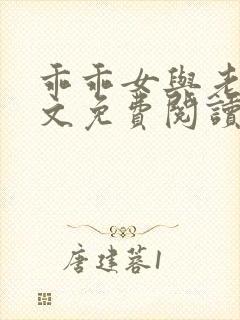 乖乖女與老
文免費閱讀
唐建蓉1